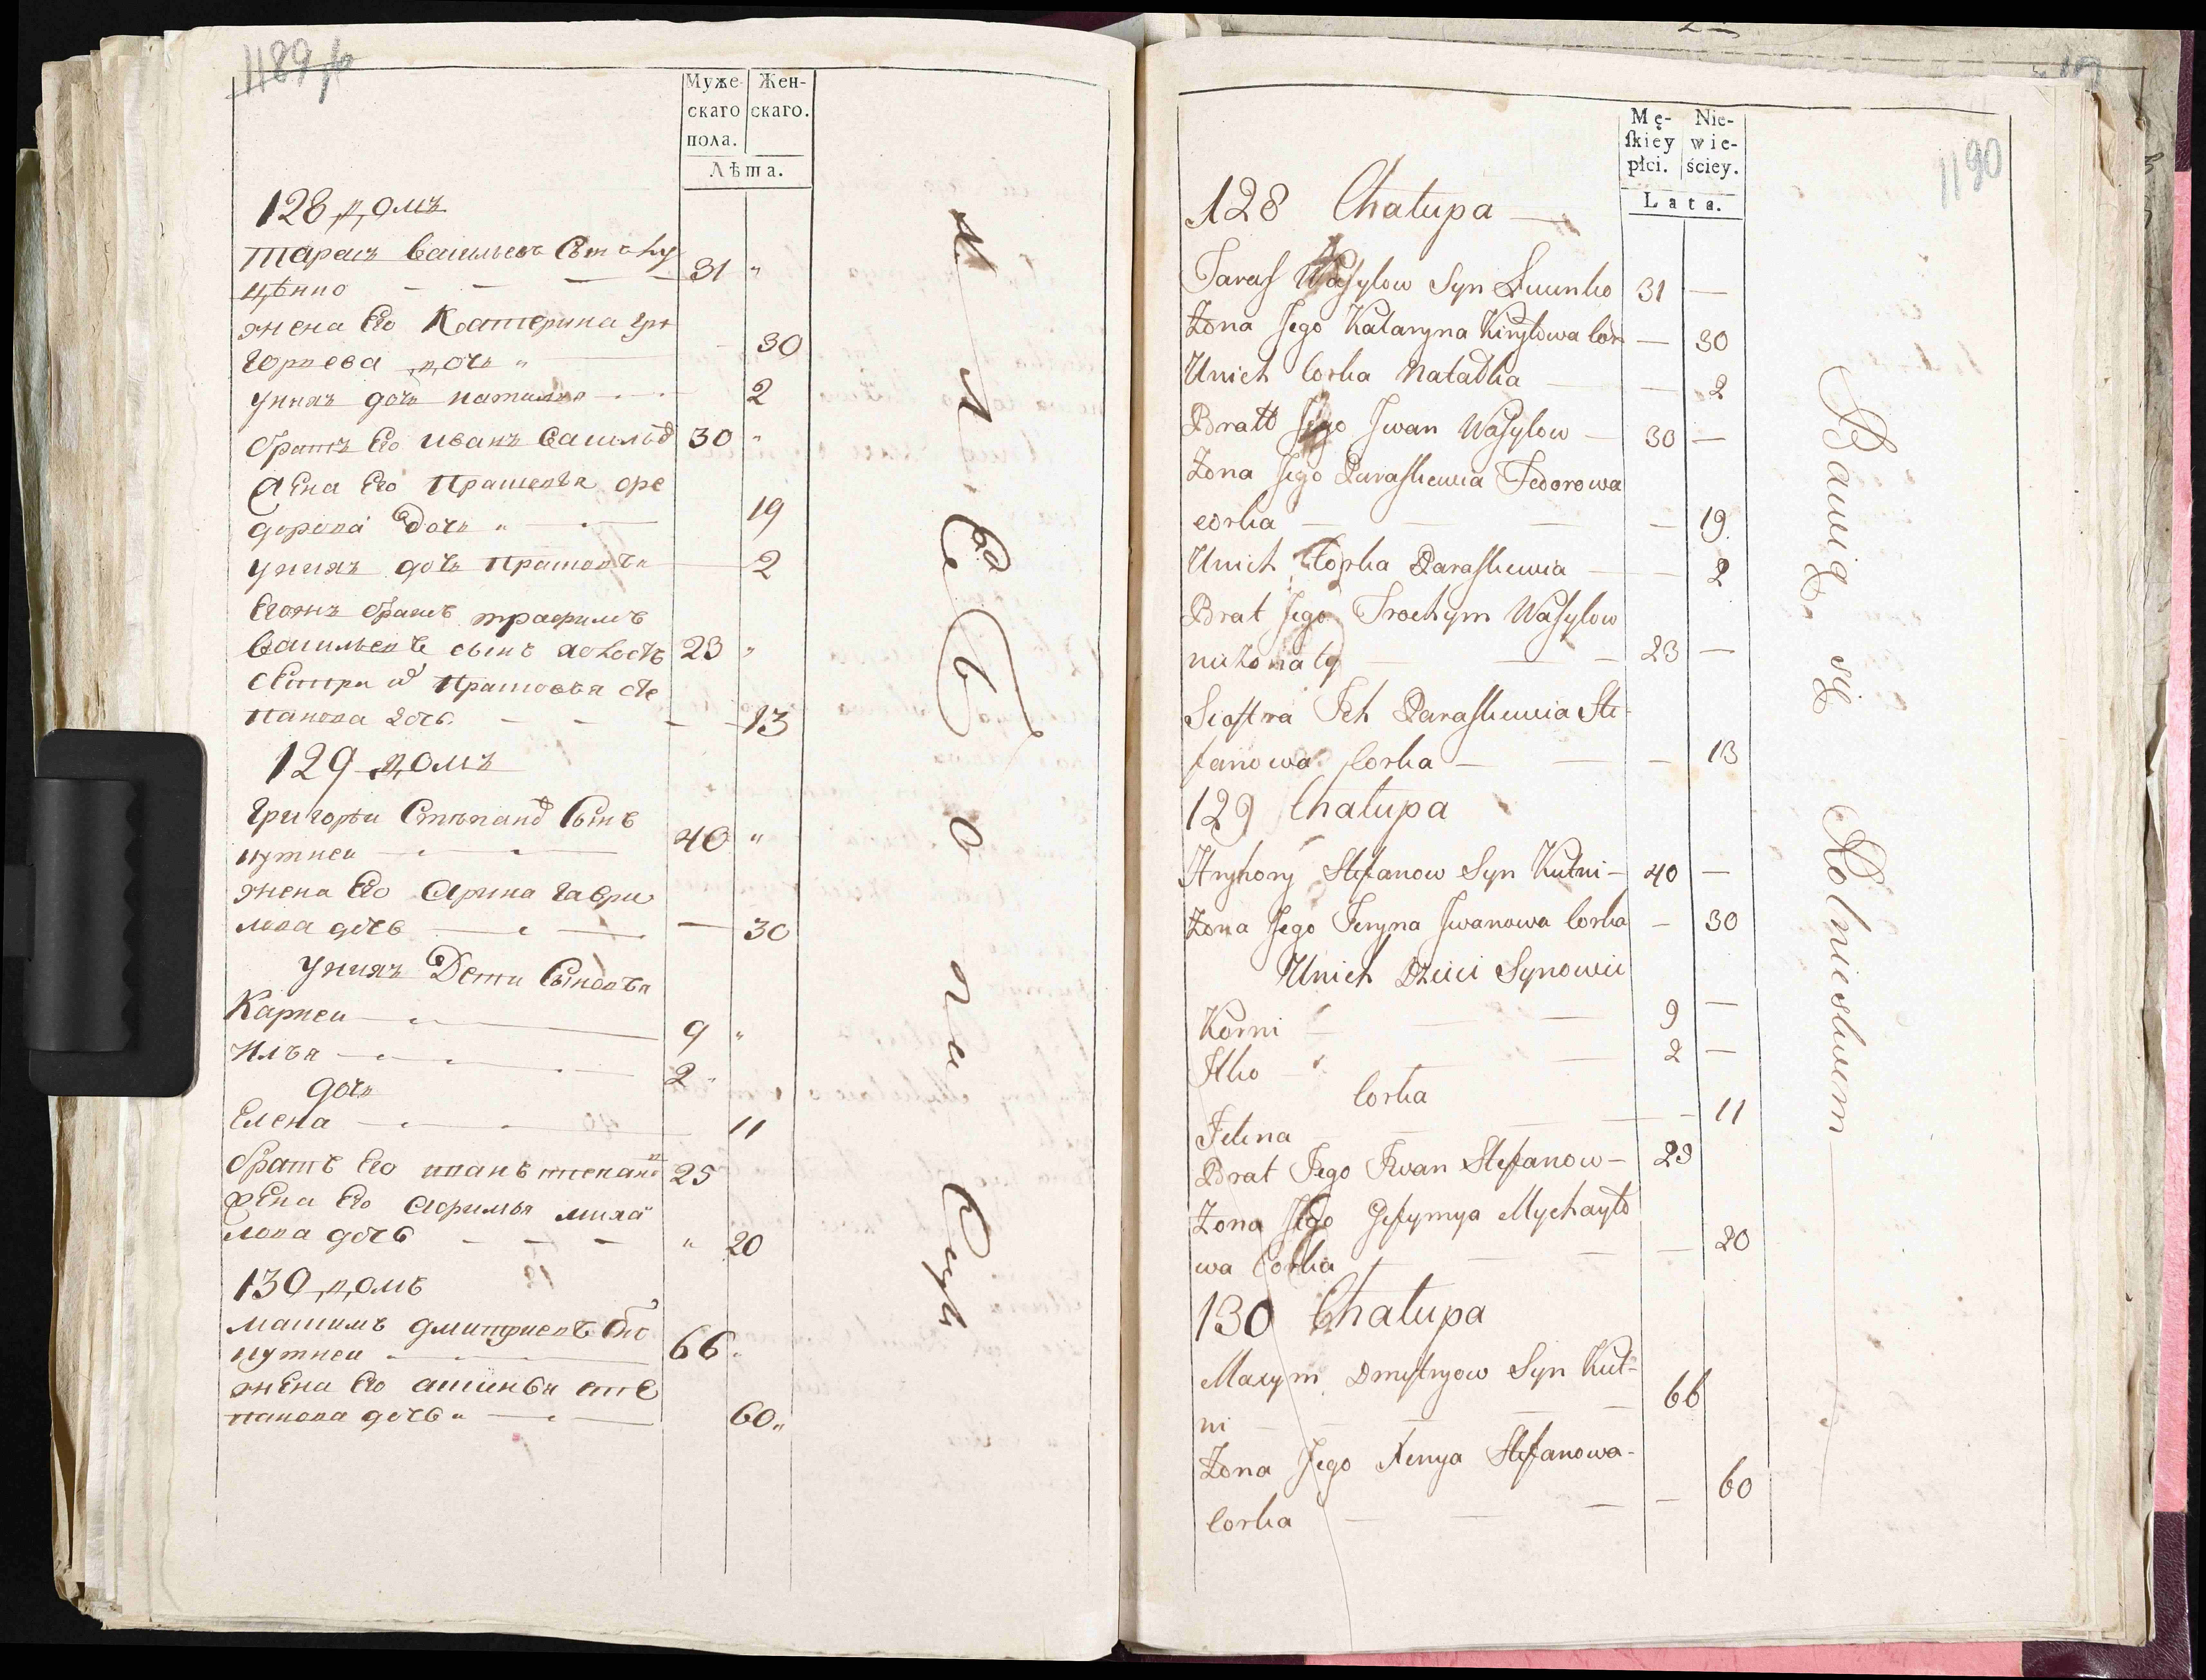 1189
Муже-
скаго
пола.
Жен-
скаго.
Лѣта.
128 домъ
Тарасъ Васильевъ Сынъ Лу
ценко 31 "
жена Его Катерина Гри
горьева дочь " 30
унихъ дочь наталья 2
братъ Его иванъ Васильевъ 30 "
жена Его Прасковья Фе
дорова дочь " 19
унихъ дочь прасковья 2
Егожъ братъ трофимъ
васильевъ сынъ холостъ 23 "
сестра их Прасковья сте
панова дочь 13
129 домъ
Григорѣи Степанов Сынъ
кутнеи 40 "
жена Его Арина гаври
лова дочь 30
унихъ Дети Сыновья
Карнеи 9 "
Илья 2 "
дочь
Елена 11
братъ Его иванъ степано 25
жена Его Афимья миха
лова дочь " 20
130 домъ
Максимъ дмитриевъ
кутнеи 66
жена Его аксинья сте
панова дочь " 60
1190
Mę-
ſkiey
płci.
Nie-
wie-
ściey.
Lata.
128 Chałupa
Taras Wasylow Syn Łucenko 31 —
Żona Jego Kataryna Kiryłowa Cór — 30
Unich Corka Natalka — 2
Bratt Jego Jwan Wasylow — 30 —
Żona Jego Paraskewia Fedorowa
corka — 19
Unich Corka Paraskewia — 2
Brat Jego Trochym Wasylow
nieżonaty 23 —
Siostra Ich Paraskewia Ste-
fanowa Corka — 13
129 Chałupa
Hryhory Stefanow Syn Kutni — 40 —
Żona Jego Jeryna Jwanowa Corka — 30
Unich Dzieci Synowie
Korni 9 —
Ilko 2 —
Corka
Jelena — 11
Brat Jego Iwan Stefanow — 25
Żona Jego Jefymya Mychayło
wa Corka — 20
130 Chałupa
Maxym Dmytryow Syn Kut-
ni 66
Żona Jego Xenya Stefanowa-
Corka — 60
Bawią się Rolnictwem